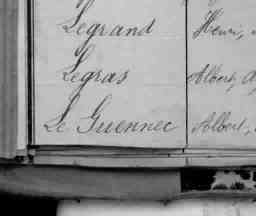 Legrand Henri,
Legras Albert,
Le Guennec Albert,